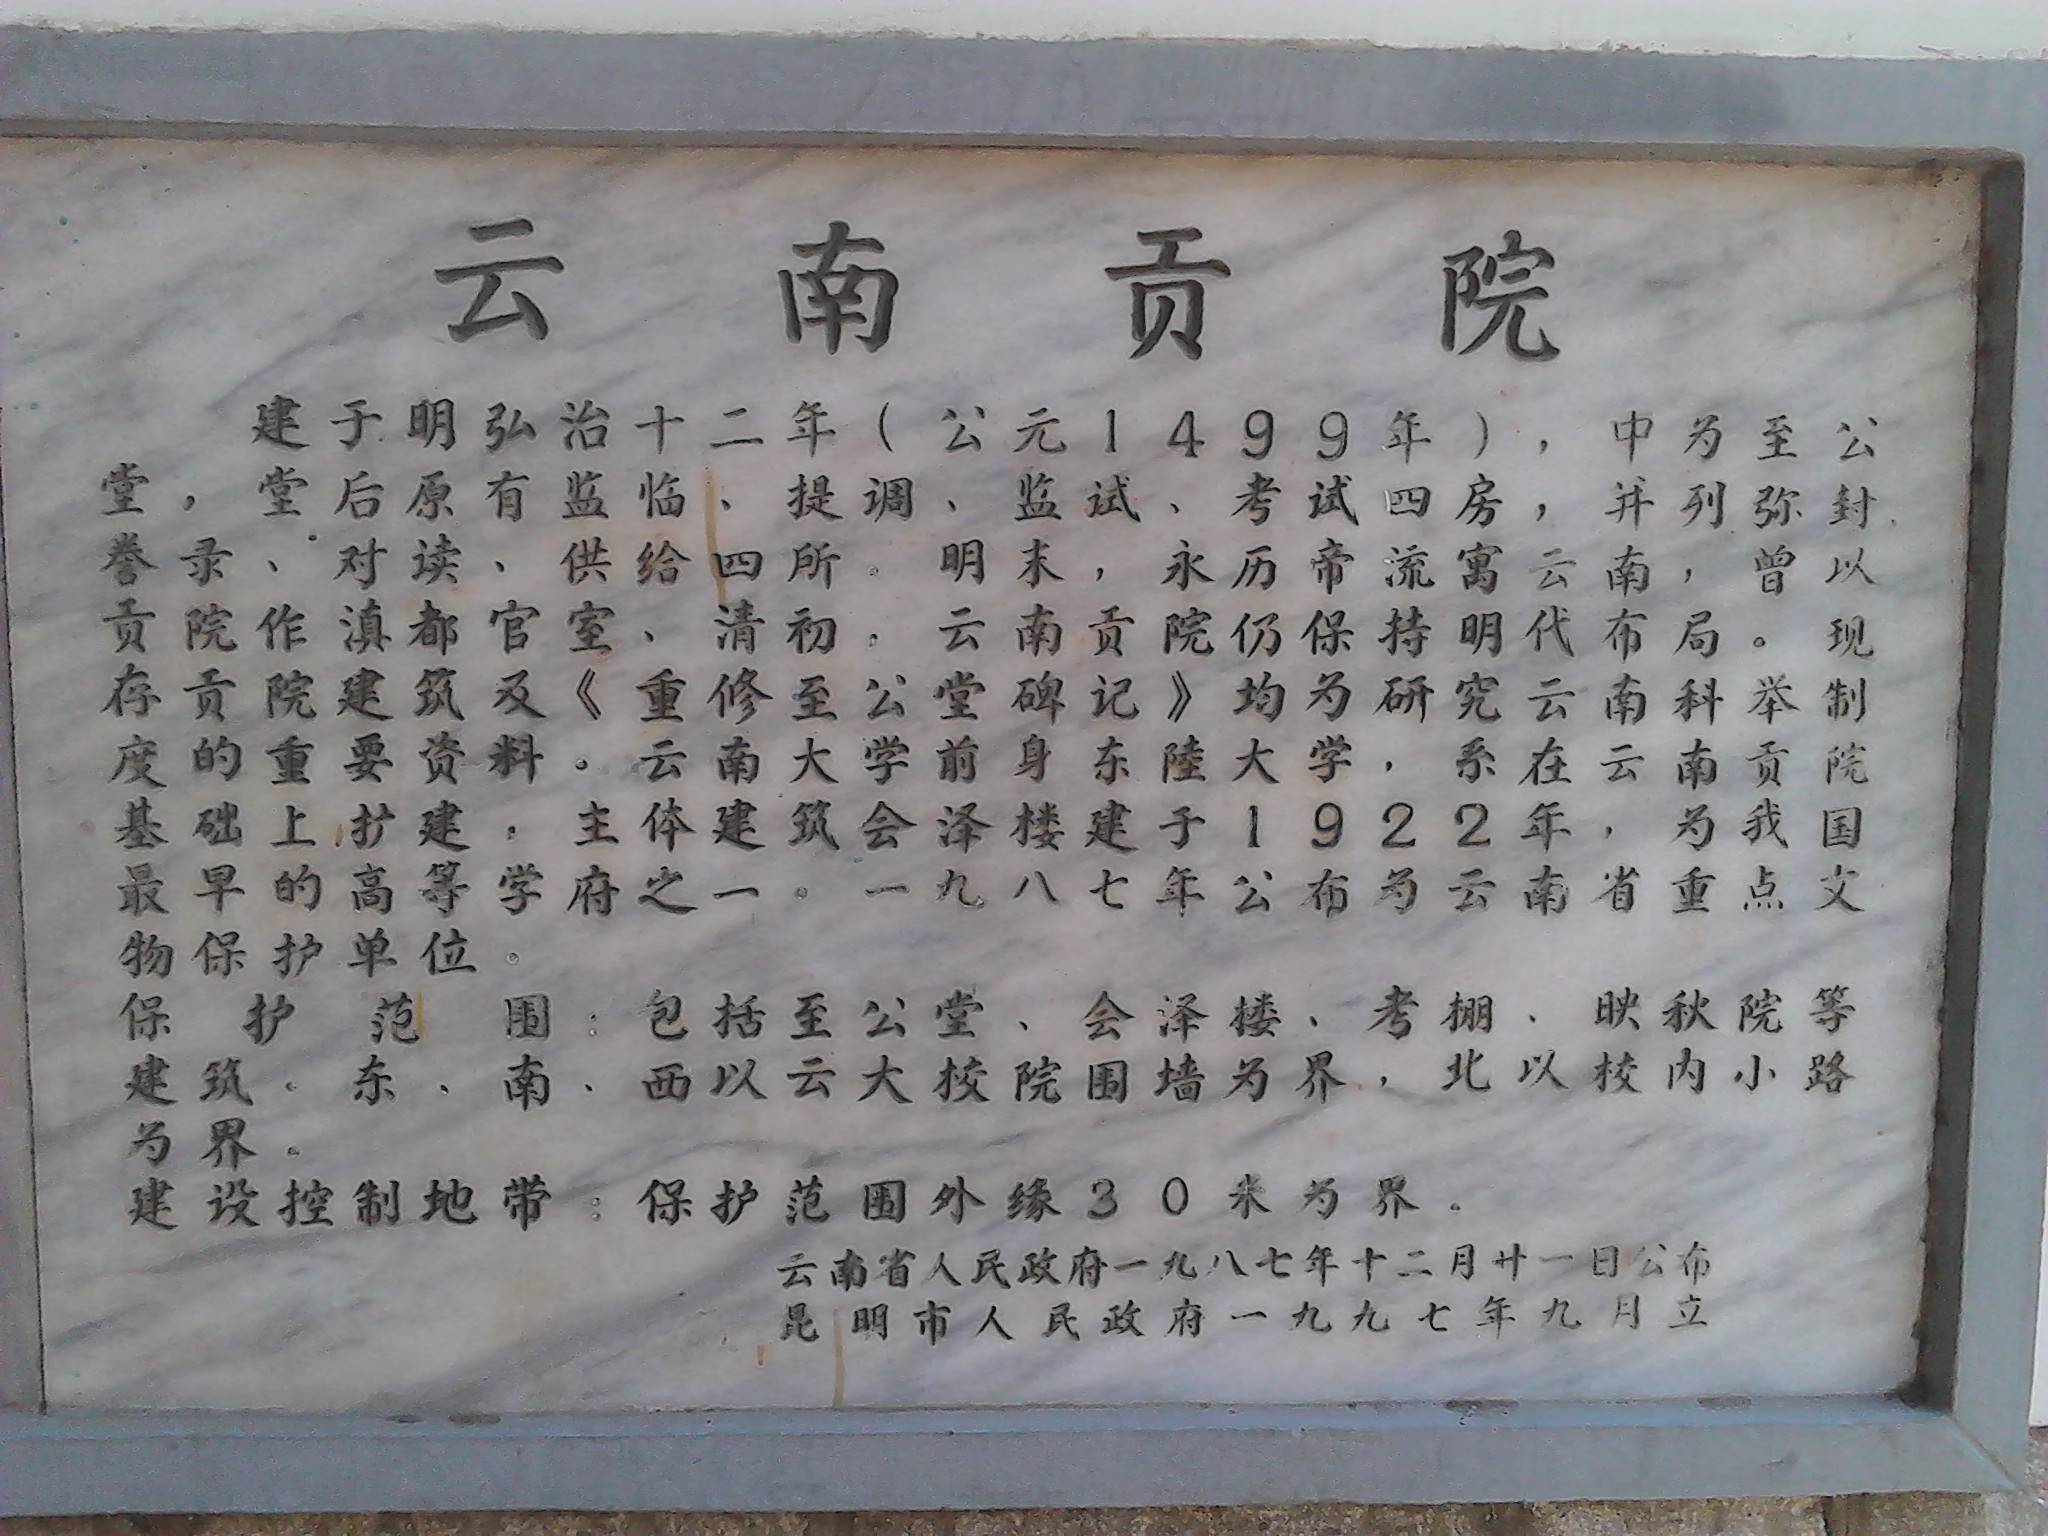 云南贡院
建于明弘治十二年(公元1499年),中为至公
堂,堂后原有监临、提调、监试、考试四房,并列弥封、
誊录、对读、供给四所。明末,永历帝流寓云南,曾以
贡院作滇都官室、清初。云南贡院仍保持明代布局。现
存贡院建筑及《重修至公堂碑记》均为研究云南科举制
度的重要资料。云南大学前身东陸大学,系在云南贡院
基础上扩建,主体建筑会泽楼建于1922年,为我国
最早的高等学府之一。一九八七年公布为云南省重点文
物保护单位。
保护范围:包括至公堂、会泽楼、考棚、映秋院等
建筑。东、南、西以云大校院围墙为界,北以校内小路
为界。
建设控制地带:保护范围外缘30米为界。
云南省人民政府一九八七年十二月廿一日公布
昆明市人民政府一九九七年九月立